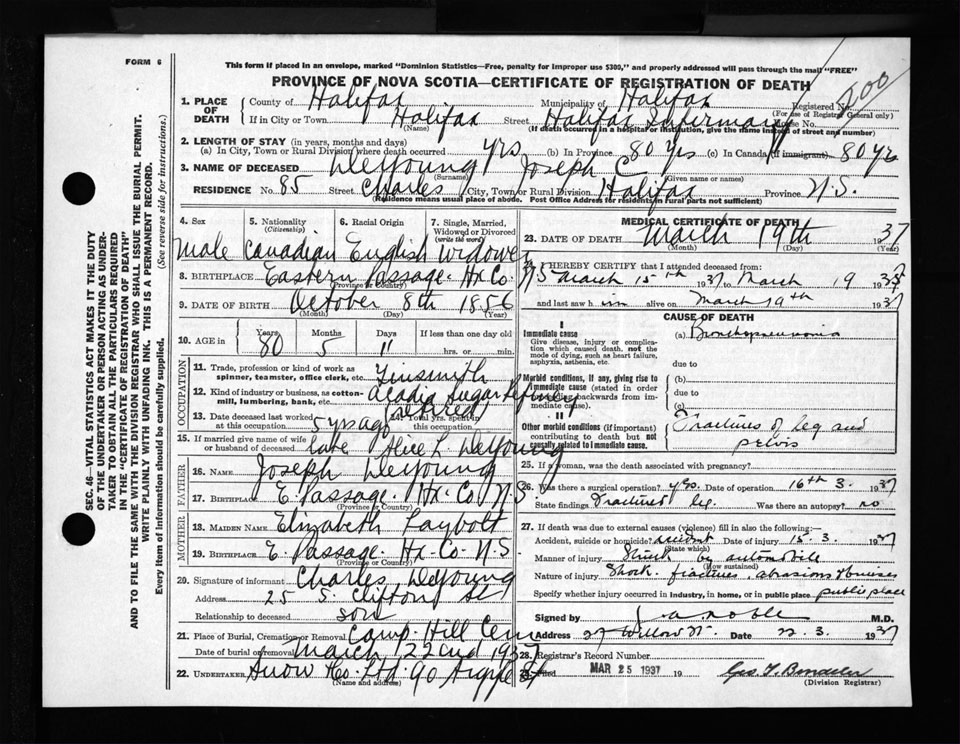 FORM 6
This form if placed in an envelope, marked "Dominion Statistics—Free, penalty for improper use $300," and properly addressed will pass through the mail "FREE"
PROVINCE OF NOVA SCOTIA—CERTIFICATE OF REGISTRATION OF DEATH
SEC. 46—VITAL STATISTICS ACT MAKES IT THE DUTY
OF THE UNDERTAKER OR PERSON ACTING AS UNDER-
TAKER TO OBTAIN ALL THE PARTICULARS REQUIRED
IN THE "CERTIFICATE OF REGISTRATION OF DEATH"
AND TO FILE THE SAME WITH THE DIVISION REGISTRAR WHO SHALL ISSUE THE BURIAL PERMIT.
WRITE PLAINLY WITH UNFADING INK. THIS IS A PERMANENT RECORD.
Every item of information should be carefully supplied. (See reverse side for instructions.)
1. PLACE OF DEATH County of Halifax Municipality of Halifax Registered No. 500
(For use of Registrar General only)
If in City or Town Halifax Street Halifax Infirmary House No.
(Name) (If death occurred in a hospital or institution, give the name instead of street and number)
2. LENGTH OF STAY (in years, months and days)
(a) In City, Town or Rural Division where death occurred yrs (b) In Province 80 yrs (c) In Canada (if immigrant) 80 yrs
3. NAME OF DECEASED DeYoung Joseph C.
(Surname) (Given name or names)
RESIDENCE No. 85 Street Charles City, Town or Rural Division Halifax Province N.S.
(Residence means usual place of abode. Post Office Address for residents in rural parts not sufficient)
4. Sex 5. Nationality (Citizenship) 6. Racial Origin 7. Single, Married, Widowed or Divorced (write the word)
Male Canadian English Widower
8. BIRTHPLACE Eastern Passage. Hx Co. N.S.
(Province or Country)
9. DATE OF BIRTH October 8th 1856
(Month) (Day) (Year)
10. AGE in Years 80 Months 5 Days 11 If less than one day old hrs. or min.
OCCUPATION
11. Trade, profession or kind of work as spinner, teamster, office clerk, etc. Tinsmith
12. Kind of industry or business, as cotton-mill, lumbering, bank, etc. Acadia Sugar Refinery
retired
13. Date deceased last worked at this occupation 5 yrs ago 14. Total yrs. spent in this occupation
15. If married give name of wife or husband of deceased late Alice L. DeYoung
FATHER
16. NAME Joseph DeYoung
17. BIRTHPLACE E. Passage. Hx. Co N.S.
(Province or Country)
MOTHER
18. MAIDEN NAME Elizabeth Laybolt
19. BIRTHPLACE E. Passage. Hx Co. N.S.
(Province or Country)
20. Signature of informant Charles DeYoung
Address 25 S. Clifton St
Relationship to deceased son
21. Place of Burial, Cremation or Removal Camp Hill Cem
Date of burial or removal March 22nd 1937
22. UNDERTAKER Snow & Co. Ltd. 90 Argyle St
(Name and address)
MEDICAL CERTIFICATE OF DEATH
23. DATE OF DEATH March 19th 1937
(Month) (Day) (Year)
24. I HEREBY CERTIFY that I attended deceased from:
March 15th 1937 to March 19 1937
and last saw him alive on March 19th 1937
CAUSE OF DEATH
I
Immediate cause
Give disease, injury or complication which caused death, not the mode of dying, such as heart failure, asphyxia, asthenia, etc.
(a) Bronchopneumonia
due to
Morbid conditions, if any, giving rise to immediate cause (stated in order proceeding backwards from immediate cause).
(b)
due to
(c)
II
Other morbid conditions (if important) contributing to death but not causally related to immediate cause.
Fractures of leg and
pelvis
25. If a woman, was the death associated with pregnancy?
26. Was there a surgical operation? yes. Date of operation 16th 3. 1937
State findings Fractured leg. Was there an autopsy? no
27. If death was due to external causes (violence) fill in also the following:—
Accident, suicide or homicide? accident Date of injury 15. 3. 1937
(State which)
Manner of injury Struck by automobile
(How sustained)
Nature of injury Shock, fractures, abrasions & bruises
Specify whether injury occurred in industry, in home, or in public place public place
Signed by J. A. Noble M.D.
Address 27 Willow St. Date 22. 3. 1937
28. Registrar's Record Number
29. Filed MAR 25 1937 19
(Division Registrar)